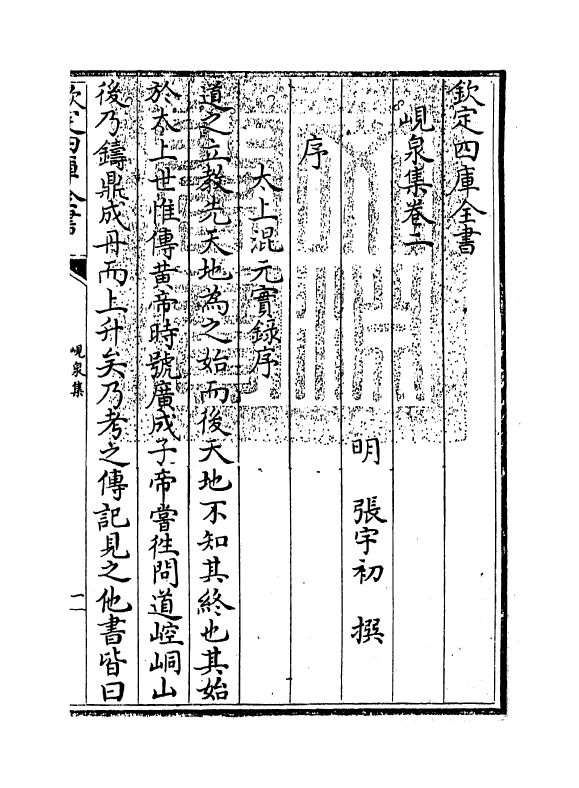 欽定四庫全書
峴泉集卷二
明 張宇初 撰
序
太上混元實錄序
道之立教先天地為之始而後天地不知其終也其始
於太上世惟傳黄帝時號廣成子帝嘗徃問道崆峒山
後乃鑄鼎成丹而上升矣乃考之傳記見之他書皆曰
欽定四庫全書
峴泉集